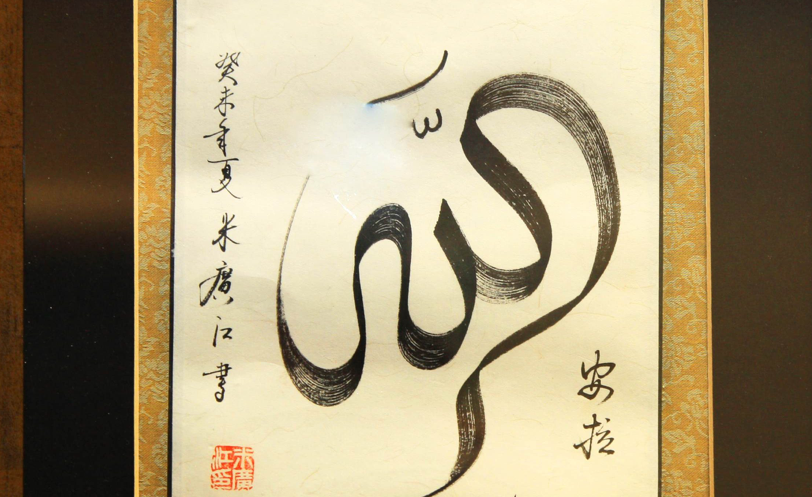 الله
安拉
癸未年夏 米廣江書
米廣江印